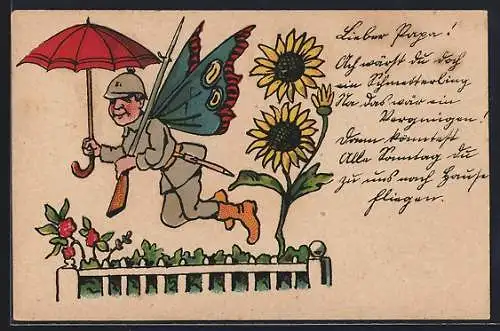 Lieber Papa!
Ach wärst du doch
ein Schmetterling
Na, das wär ein
Vergnügen!
Dann könntest
Alle Sonntag du
zu uns nach Hause
fliegen.